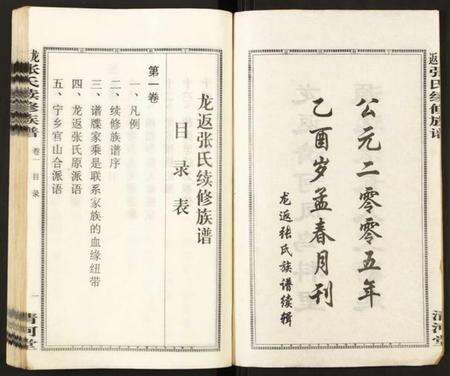 返张氏续修族谱
清河堂
公元二零零五年
乙酉岁孟春月刊
龙返张氏族谱续辑
龙返张氏续修族谱
目录表
第一卷
一、凡例
二、续修族谱序
三、谱牒家乘是联系家族的血缘纽带
四、龙返张氏原派语
五、宁乡官山合派语
张氏续修族谱
卷一 目录
一
清河堂